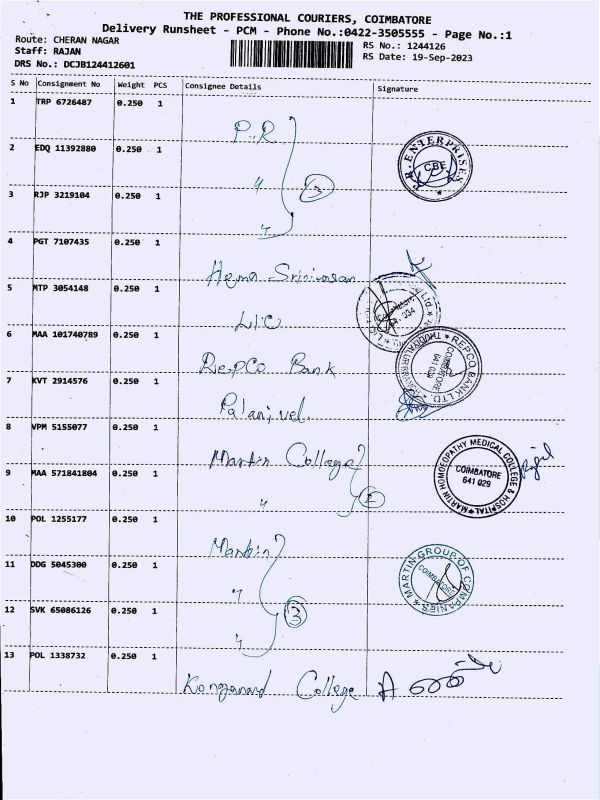 THE PROFESSIONAL COURIERS, COIMBATORE
Delivery Runsheet - PCM - Phone No.:0422-3505555 - Page No.:1
Route: CHERAN NAGAR
RS No.: 1244126
Staff: RAJAN
RS Date: 19-Sep-2023
DRS No.: DCJB124412601
S No Consignment No Weight PCS Consignee Details Signature
1 TRP 6726487 0.250 1
P.R
2 EDQ 11392880 0.250 1
R. ENTERPRISES CBE
〃 3
3 RJP 3219104 0.250 1
〃
4 PGT 7107435 0.250 1
Hema Srinivasan
5 MTP 3054148 0.250 1
LIC
6 MAA 101740789 0.250 1
REPCO BANK LTD. COIMBATORE 641 029
Repco Bank
7 KVT 2914576 0.250 1
Palanivel.
8 VPM 5155077 0.250 1
Martin College
MARTIN HOMOEOPATHY MEDICAL COLLEGE & HOSPITAL COIMBATORE 641 029
9 MAA 571841804 0.250 1
〃 2
10 POL 1255177 0.250 1
Martin
11 DDG 5045300 0.250 1
MARTIN GROUP OF COMPANIES COIMBATORE
〃
12 SVK 65086126 0.250 1
3
〃
13 POL 1338732 0.250 1
College